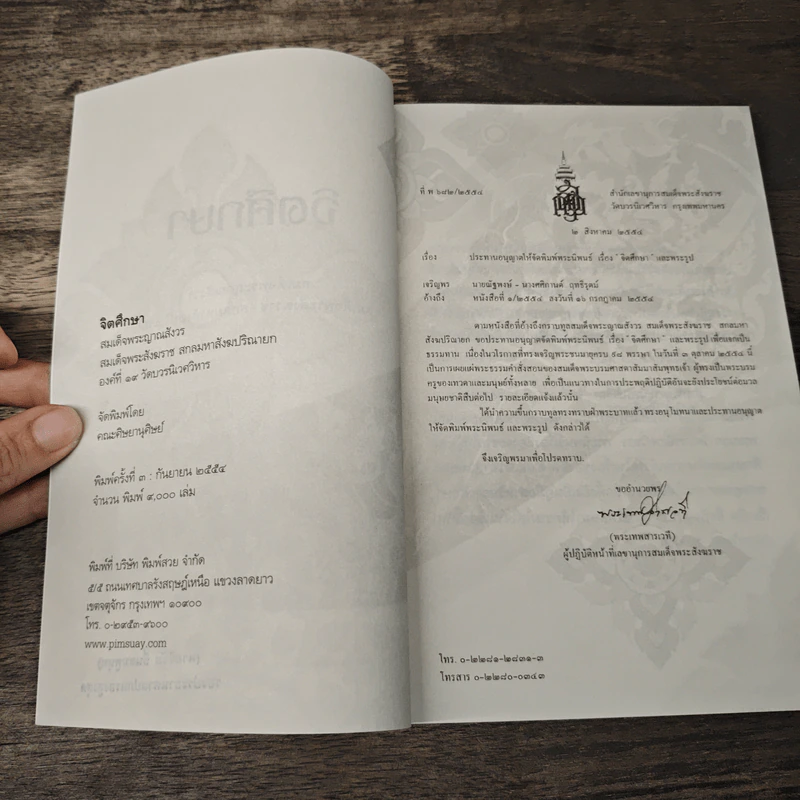 จิตศึกษา
สมเด็จพระญาณสังวร
สมเด็จพระสังฆราช สกลมหาสังฆปริณายก
องค์ที่ ๑๙ วัดบวรนิเวศวิหาร
จัดพิมพ์โดย
คณะศิษยานุศิษย์
พิมพ์ครั้งที่ ๓ : กันยายน ๒๕๕๔
จำนวน พิมพ์ ๙,๐๐๐ เล่ม
พิมพ์ที่ บริษัท พิมพ์สวย จำกัด
๕/๕ ถนนเทศบาลรังสฤษฎ์เหนือ แขวงลาดยาว
เขตจตุจักร กรุงเทพฯ ๑๐๙๐๐
โทร. ๐-๒๙๕๓-๙๖๐๐
www.pimsuay.com
ที่ พ ๖๘๒/๒๕๕๔
สำนักเลขานุการสมเด็จพระสังฆราช
วัดบวรนิเวศวิหาร กรุงเทพมหานคร
๒ สิงหาคม ๒๕๕๔
เรื่อง ประทานอนุญาตให้จัดพิมพ์พระนิพนธ์ เรื่อง "จิตศึกษา" และพระรูป
เจริญพร นายณัฐพงษ์ - นางศศิกานต์ ฤทธิ์รุตน์
อ้างถึง หนังสือที่ ๑/๒๕๕๔ ลงวันที่ ๑๖ กรกฎาคม ๒๕๕๔
ตามหนังสือที่อ้างถึงกราบทูลสมเด็จพระญาณสังวร สมเด็จพระสังฆราช สกลมหา
สังฆปริณายก ขอประทานอนุญาตจัดพิมพ์พระนิพนธ์ เรื่อง "จิตศึกษา" และพระรูป เพื่อแจกเป็น
ธรรมทาน เนื่องในวโรกาสที่ทรงเจริญพระชนมายุครบ ๙๘ พรรษา ในวันที่ ๓ ตุลาคม ๒๕๕๔ นี้
เป็นการเผยแผ่พระธรรมคำสั่งสอนของสมเด็จพระบรมศาสดาสัมมาสัมพุทธเจ้า ผู้ทรงเป็นพระบรม
ครูของเทวดาและมนุษย์ทั้งหลาย เพื่อเป็นแนวทางในการประพฤติปฏิบัติอันจะยังประโยชน์ต่อมวล
มนุษยชาติสืบต่อไป รายละเอียดแจ้งแล้วนั้น
ได้นำความขึ้นกราบทูลทรงทราบฝ่าพระบาทแล้ว ทรงอนุโมทนาและประทานอนุญาต
ให้จัดพิมพ์พระนิพนธ์ และพระรูป ดังกล่าวได้
จึงเจริญพรมาเพื่อโปรดทราบ.
ขออำนวยพร
(พระเทพสารเวที)
ผู้ปฏิบัติหน้าที่เลขานุการสมเด็จพระสังฆราช
โทร. ๐-๒๒๘๑-๒๘๓๑-๓
โทรสาร ๐-๒๒๘๐-๐๓๔๓